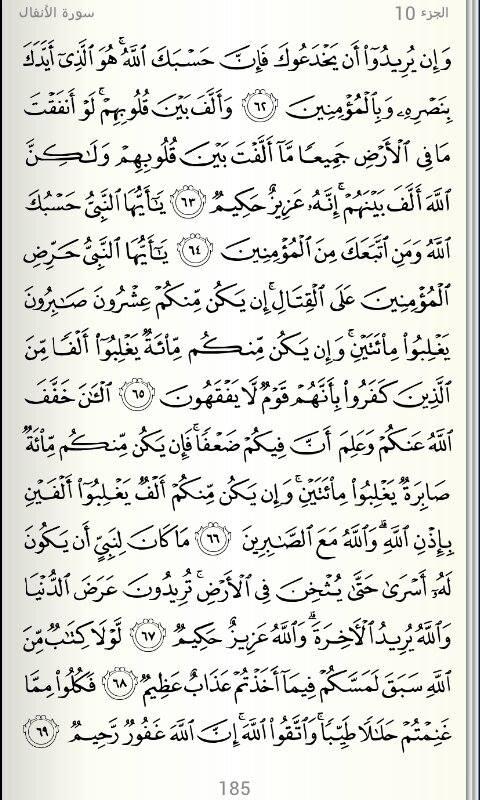 الجزء 10 سورة الأنفال
وَإِن يُرِيدُوٓا۟ أَن يَخْدَعُوكَ فَإِنَّ حَسْبَكَ ٱللَّهُ ۚ هُوَ ٱلَّذِىٓ أَيَّدَكَ
بِنَصْرِهِۦ وَبِٱلْمُؤْمِنِينَ ٦٢ وَأَلَّفَ بَيْنَ قُلُوبِهِمْ ۚ لَوْ أَنفَقْتَ
مَا فِى ٱلْأَرْضِ جَمِيعًا مَّآ أَلَّفْتَ بَيْنَ قُلُوبِهِمْ وَلَـٰكِنَّ
ٱللَّهَ أَلَّفَ بَيْنَهُمْ ۚ إِنَّهُۥ عَزِيزٌ حَكِيمٌ ٦٣ يَـٰٓأَيُّهَا ٱلنَّبِىُّ حَسْبُكَ
ٱللَّهُ وَمَنِ ٱتَّبَعَكَ مِنَ ٱلْمُؤْمِنِينَ ٦٤ يَـٰٓأَيُّهَا ٱلنَّبِىُّ حَرِّضِ
ٱلْمُؤْمِنِينَ عَلَى ٱلْقِتَالِ ۚ إِن يَكُن مِّنكُمْ عِشْرُونَ صَـٰبِرُونَ
يَغْلِبُوا۟ مِا۟ئَتَيْنِ ۚ وَإِن يَكُن مِّنكُم مِّا۟ئَةٌ يَغْلِبُوٓا۟ أَلْفًا مِّنَ
ٱلَّذِينَ كَفَرُوا۟ بِأَنَّهُمْ قَوْمٌ لَّا يَفْقَهُونَ ٦٥ ٱلْـَٔـٰنَ خَفَّفَ
ٱللَّهُ عَنكُمْ وَعَلِمَ أَنَّ فِيكُمْ ضَعْفًا ۚ فَإِن يَكُن مِّنكُم مِّا۟ئَةٌ
صَابِرَةٌ يَغْلِبُوا۟ مِا۟ئَتَيْنِ ۚ وَإِن يَكُن مِّنكُمْ أَلْفٌ يَغْلِبُوٓا۟ أَلْفَيْنِ
بِإِذْنِ ٱللَّهِ ۗ وَٱللَّهُ مَعَ ٱلصَّـٰبِرِينَ ٦٦ مَا كَانَ لِنَبِىٍّ أَن يَكُونَ
لَهُۥٓ أَسْرَىٰ حَتَّىٰ يُثْخِنَ فِى ٱلْأَرْضِ ۚ تُرِيدُونَ عَرَضَ ٱلدُّنْيَا
وَٱللَّهُ يُرِيدُ ٱلْـَٔاخِرَةَ ۗ وَٱللَّهُ عَزِيزٌ حَكِيمٌ ٦٧ لَّوْلَا كِتَـٰبٌ مِّنَ
ٱللَّهِ سَبَقَ لَمَسَّكُمْ فِيمَآ أَخَذْتُمْ عَذَابٌ عَظِيمٌ ٦٨ فَكُلُوا۟ مِمَّا
غَنِمْتُمْ حَلَـٰلًا طَيِّبًا ۚ وَٱتَّقُوا۟ ٱللَّهَ ۚ إِنَّ ٱللَّهَ غَفُورٌ رَّحِيمٌ ٦٩
185